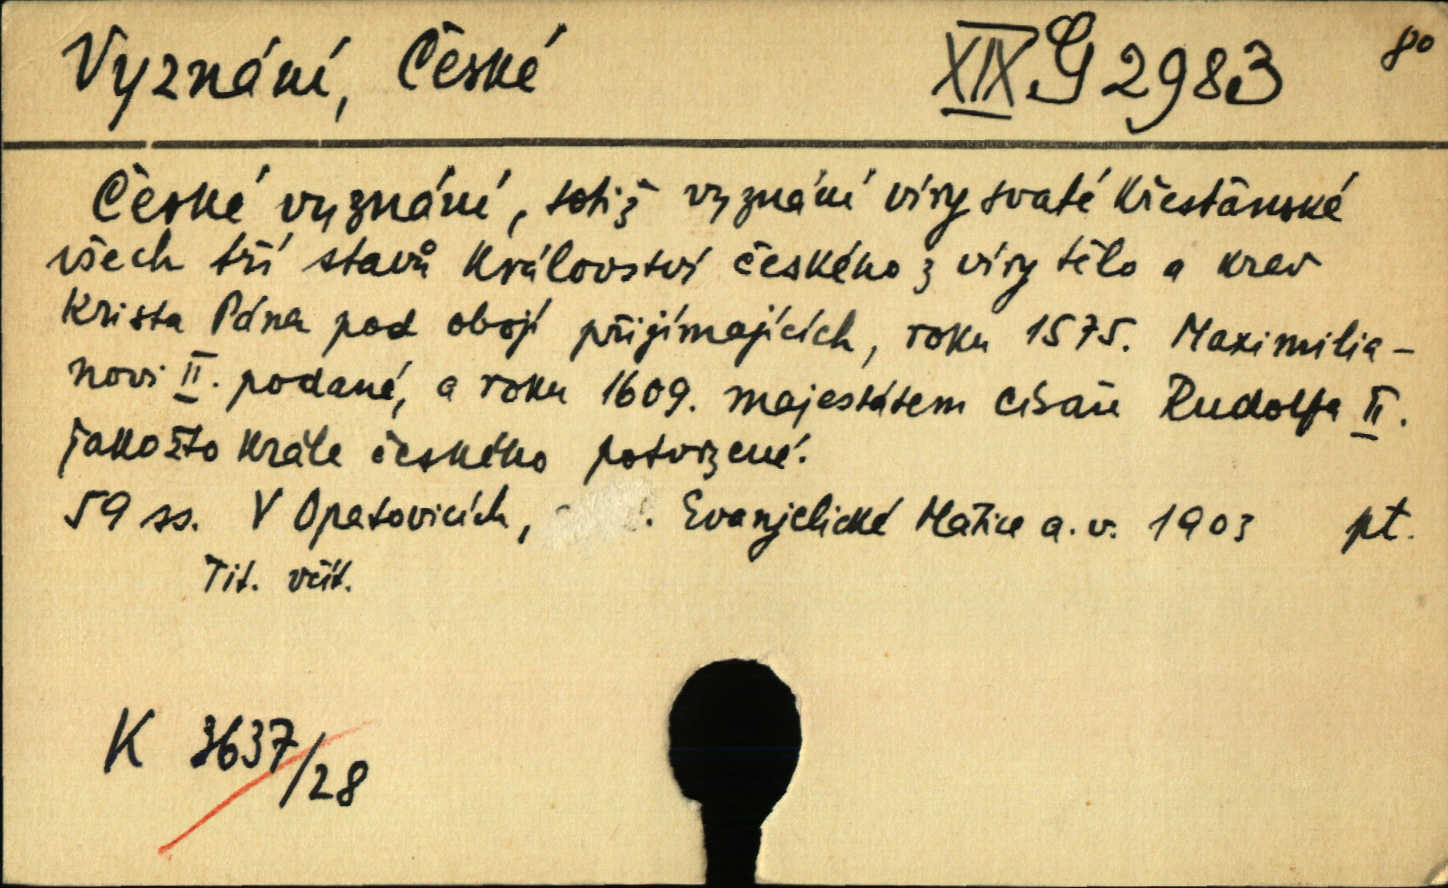 Vyznání, České
XIX G 2983
8°
České vyznání, totiž vyznání víry svaté křesťanské
všech tří stavů království českého z víry tělo a krev
Krista Pána pod obojí přijímajících, roku 1575. Maximilia-
novi II. podané, a roku 1609. majestátem císaře Rudolfa II.
jakožto krále českého potvrzené.
59 ss. V Opatovicích, Evanjelické Matice a. v. 1903 pt.
Tit. včít.
K 3637/28